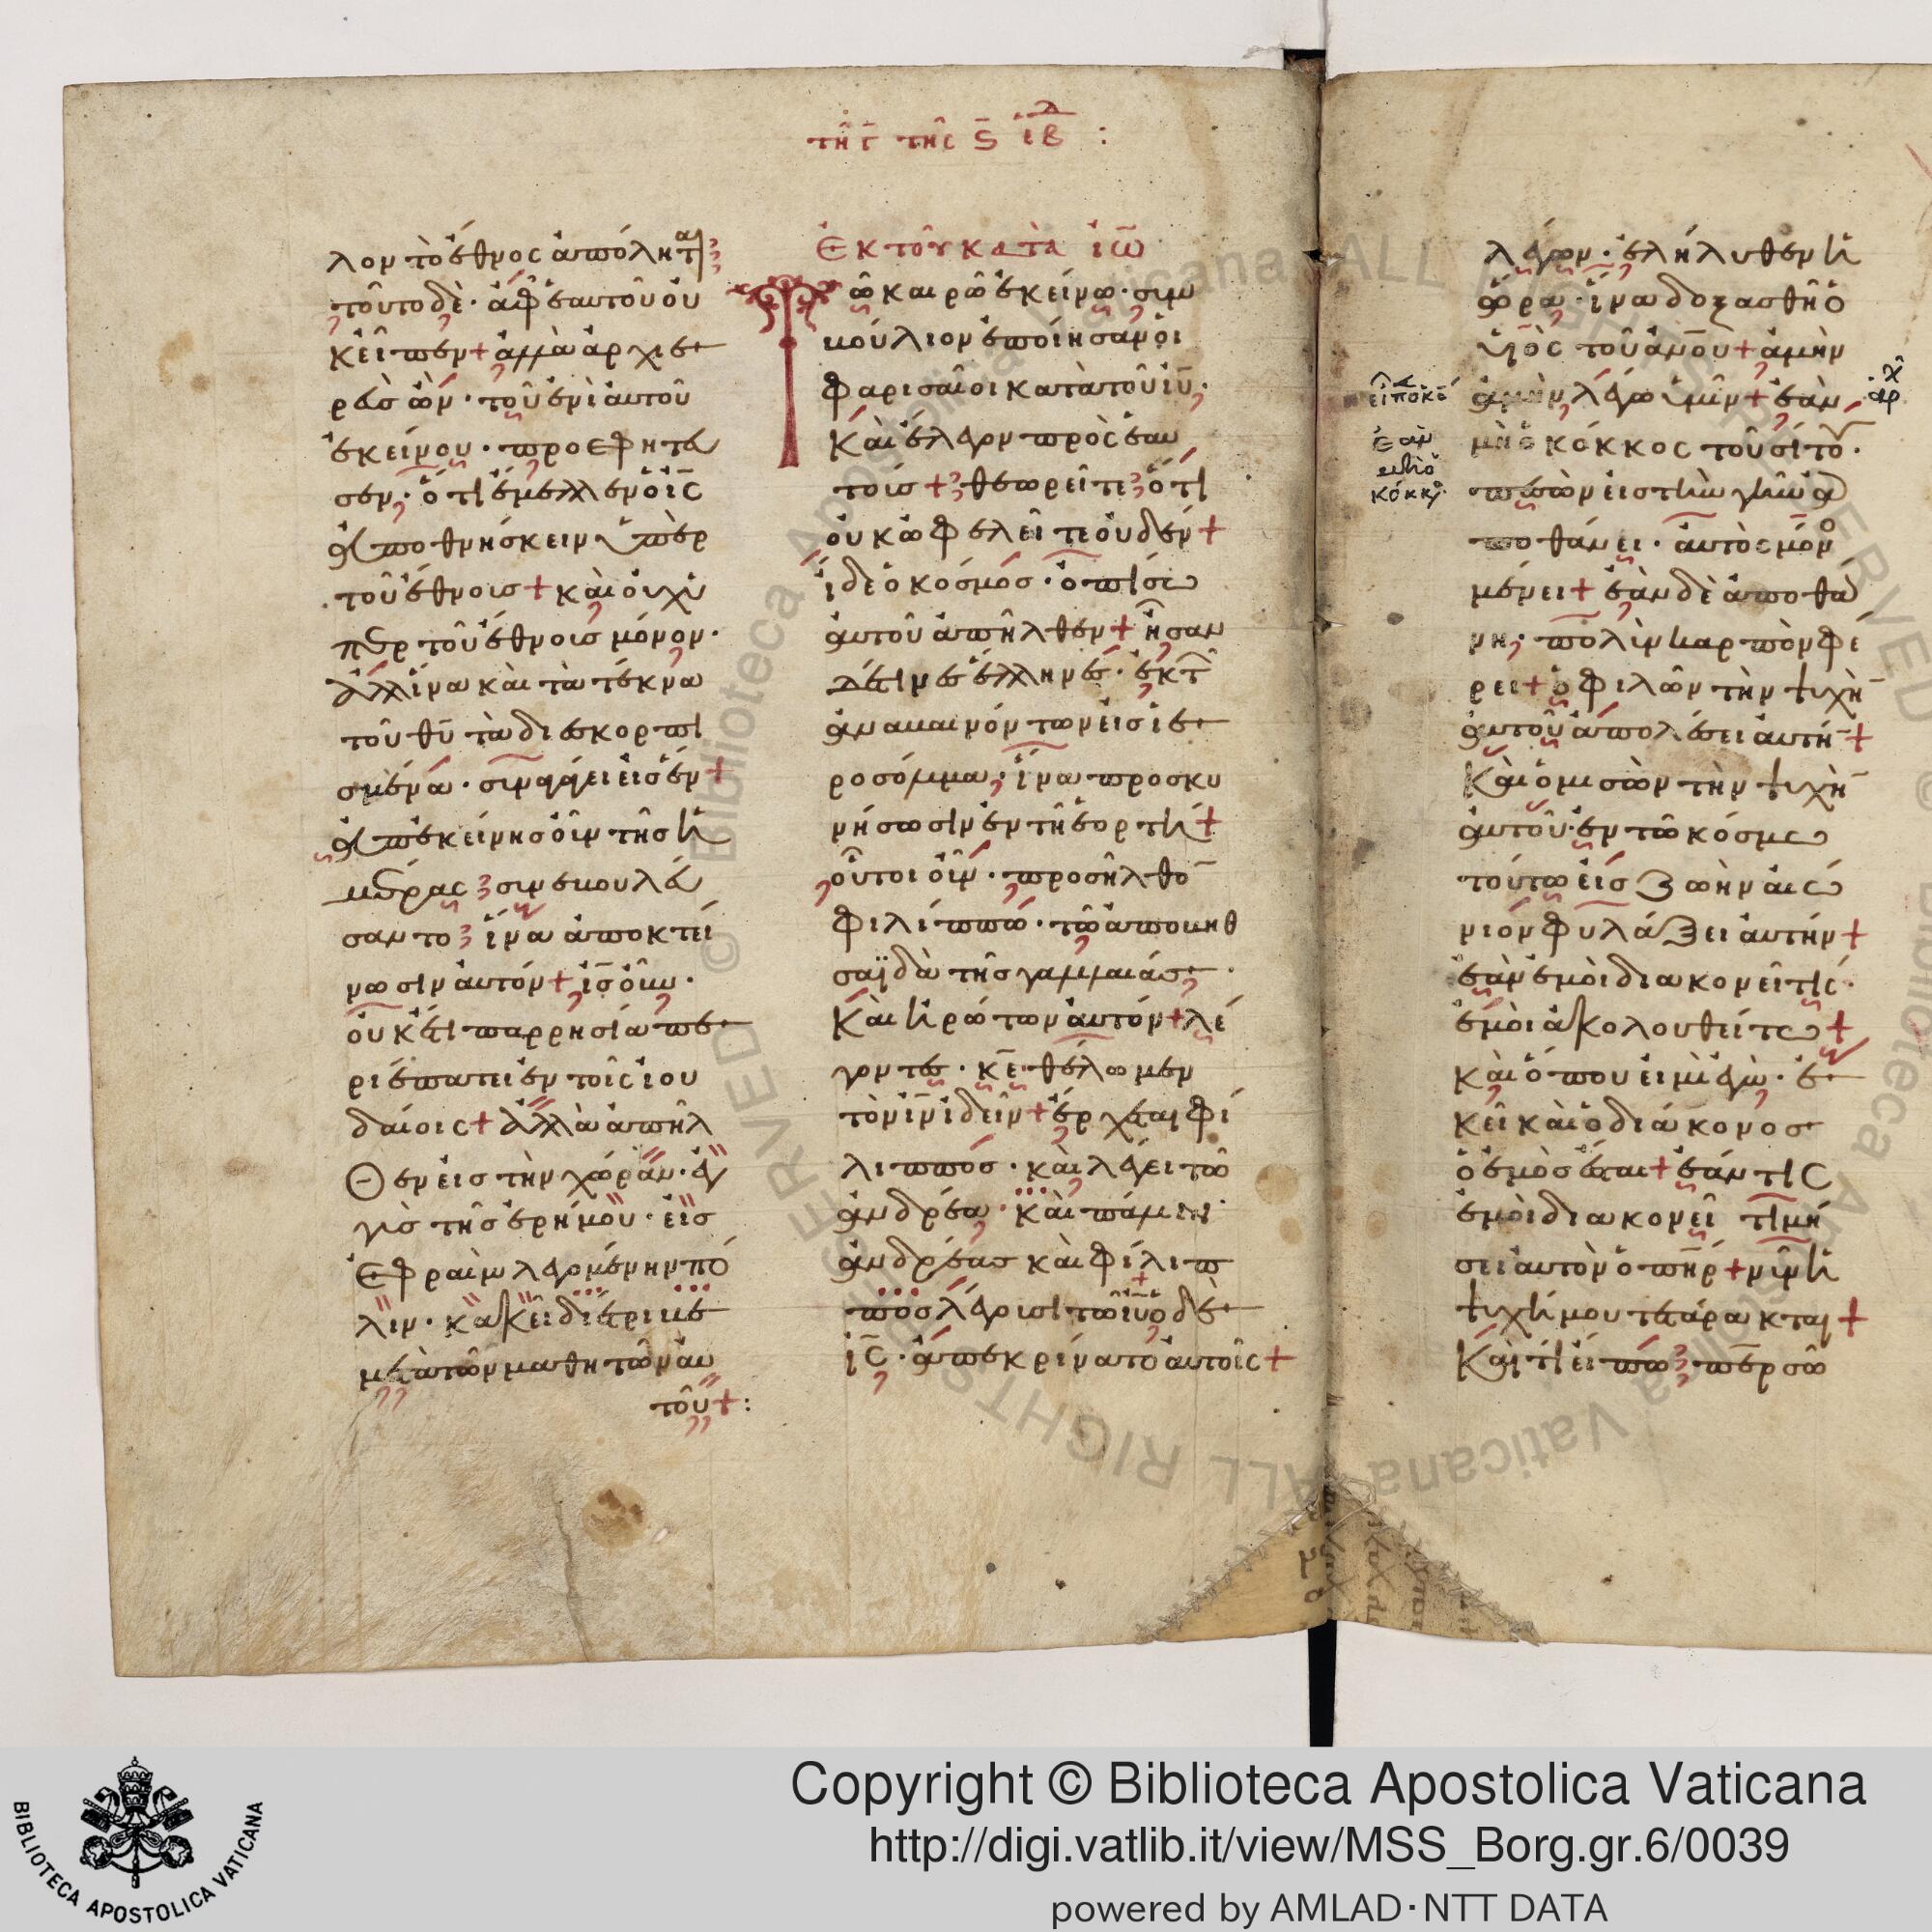 τῆ γ̄ τῆς ϛ̄ ιβ :
λον τὸ ἔθνος ἀπόληται
τοῦτο δὲ · ἀφ ἑαυτοῦ οὐ
κ εἶπεν + ἀλλὰ ἀρχιε
ρεὺσ ὢν · τοῦ ἐνϊαυτοῦ
ἐκείνου · προεφήτευ
σεν · ὅτι ἔμελλεν ὁ ι̅ς̅
ἀποθνήσκειν ὑπὲρ
τοῦ ἔθνουσ + καὶ οὐχ ὑ
πὲρ τοῦ ἔθνουσ μόνον ·
ἀλλ ἵνα καὶ τὰ τέκνα
τοῦ θ̅υ̅ τὰ διεσκορπι
σμένα · συναγάγει εἰσ ἕν +
ἀπ ἐκείνησ οὖν τῆσ ἡ
μέρας συνεβουλεύ
σαντο ἵνα ἀποκτεί
νωσιν αὐτόν + ι̅σ̅ οὖν ·
οὐκ ἔτι παρρησία πε
ριέπατει ἐν τοῖς ἰου
δαίοις + ἀλλὰ ἀπῆλ
θεν εἰσ τὴν χώραν · ἐγ
γὺσ τῆσ ἐρήμου · εἰσ
ἐφραὶμ λεγομένην πό
λιν · κἀκεῖ διέτριβε
μετὰ τῶν μαθητῶν αὐ
τοῦ + :
ἐκ τοῦ κατὰ ἰω̅
Τῶ καιρῶ ἐκείνω · συμ
βούλιον ἐποίησαν οἱ
φαρισαῖοι κατὰ τοῦ ι̅υ̅ ·
καὶ ἔλεγον πρὸς ἑαυ
τούσ + θεωρεῖτε ὅτι
οὐκ ὠφελεῖτε οὐδέν +
ἴδε ὁ κόσμοσ · ὀπίσω
αὐτοῦ ἀπῆλθεν + ἦσαν
δέ τινεσ ἕλληνεσ · ἐκ τῶν
ἀναβαινόντων εἰσ ἱε
ροσόλυμα · ἵνα προσκυ
νήσωσιν ἐν τῆ ἑορτῆ +
οὗτοι οὖν · προσῆλθο̅
φιλίππω · τῶ ἀπο βηθ
σαϊδὰ τῆσ γαλλιλαίασ ·
καὶ ἠρώτων αὐτόν + λέ
γοντεσ · κ̅ε̅ · θέλωμεν
τὸν ι̅ν̅ ἰδεῖν + ἔρχεται φί
λιπποσ · καὶ λέγει τῶ
ἀνδρέα · καὶ πάλιν ·
ἀνδρέασ καὶ φίλιπ
ποσ λέγουσι τῶ ι̅υ̅ ὁ δὲ
ι̅ς̅ · ἀπεκρίνατο αὐτοῖς +
λέγων · ἐλήλυθεν ἡ
ὥρα · ἵνα δοξασθῆ ὁ
υἱὸς τοῦ α̅ν̅ο̅υ̅ + ἀμὴν
ἀμὴν λέγω ὑμῖν + ἐὰν
μὴ ὁ κόκκος τοῦ σίτου ·
πεσὼν εἰσ τὴν γῆν ἀ
ποθάνει · αὐτὸς μόνο
μένει + ἐὰν δὲ ἀποθά
νη · πολὺν καρπὸν φέ
ρει + ὁ φιλῶν τὴν ψυχὴ̅
αὐτοῦ ἀπολέσει αὐτή̅ +
καὶ ὁ μισῶν τὴν ψυχὴ̅
αὐτοῦ · ἐν τῶ κόσμω
τούτω εἰσ ζωὴν αἰώ
νιον φυλάξει αὐτήν +
ἐὰν ἐμοὶ διακονεῖ τις ·
ἐμοὶ ἀκολουθείτω +
καὶ ὅπου εἰμὶ ἐγὼ · ἐ
κεῖ καὶ ὁ διάκονοσ
ὁ ἐμὸσ ἔσται + ἐάν τις
ἐμοὶ διακονεῖ τιμή
σει αὐτὸν ὁ π̅η̅ρ̅ + νῦν ἡ
ψυχή μου τετάρακται +
καὶ τί εἴπω π̅ε̅ρ̅ σῶ
ἐὰν
μὴ ὁ
κόκκος